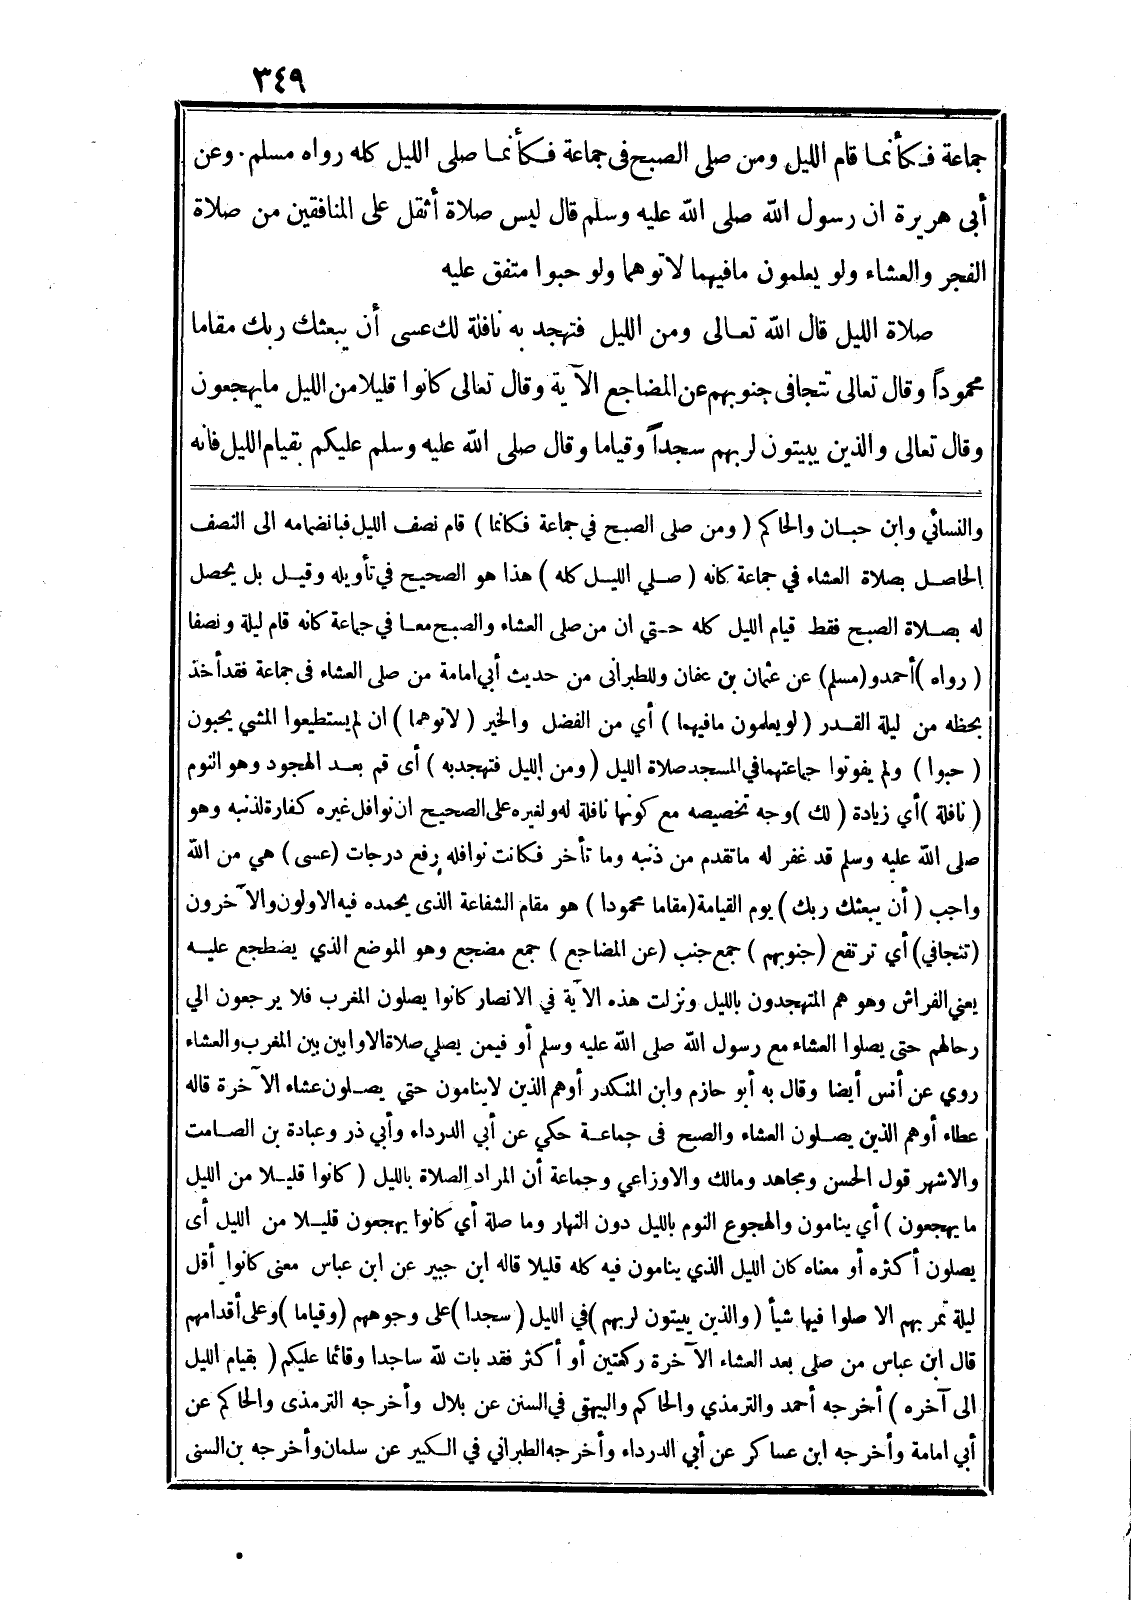 ٣٤٩
جماعة فكأنما قام الليل ومن صلى الصبح فى جماعة فكأنما صلى الليل كله رواه مسلم . وعن
أبى هريرة ان رسول الله صلى الله عليه وسلم قال ليس صلاة أثقل على المنافقين من صلاة
الفجر والعشاء ولو يعلمون مافيهما لاتوهما ولو حبوا متفق عليه
صلاة الليل قال الله تعالى ومن الليل فتهجد به نافلة لك عسى أن يبعثك ربك مقاما
محموداً وقال تعالى تتجافى جنوبهم عن المضاجع الآية وقال تعالى كانوا قليلا من الليل مايهجعون
وقال تعالى والذين يبيتون لربهم سجداً وقياما وقال صلى الله عليه وسلم عليكم بقيام الليل فانه
والنسائي وابن حبان والحاكم ( ومن صلى الصبح في جماعة فكانما ) قام نصف الليل فبانضمامه الى النصف
الحاصل بصلاة العشاء في جماعة كانه ( صلي الليل كله ) هذا هو الصحيح في تأويله وقيل بل يحصل
له بصلاة الصبح فقط قيام الليل كله حتي ان من صلى العشاء والصبح معا في جماعة كانه قام ليلة ونصفا
( رواه ) أحمدو (مسلم) عن عثمان بن عفان وللطبرانى من حديث أبي امامة من صلى العشاء فى جماعة فقد أخذ
بحظه من ليلة القدر ( لو يعلمون مافيهما ) أي من الفضل والخير ( لاتوهما ) ان لم يستطيعوا المشي يحبون
( حبوا ) ولم يفوتوا جماعتهما في المسجد صلاة الليل ( ومن الليل فتهجدبه ) أى قم بعد الهجود وهو النوم
( نافلة ) أي زيادة ( لك ) وجه تخصيصه مع كونها نافلة له ولغيره على الصحيح ان نوافل غيره كفارة لذنبه وهو
صلى الله عليه وسلم قد غفر له ماتقدم من ذنبه وما تأخر فكانت نوافله رفع درجات (عسى) هي من الله
واجب ( أن يبعثك ربك ) يوم القيامة (مقاما محمودا ) هو مقام الشفاعة الذى يحمده فيه الاولون والآخرون
(تتجافي) أي ترتفع (جنوبهم ) جمع جنب (عن المضاجع ) جمع مضجع وهو الموضع الذي يضطجع عليه
يعني الفراش وهو هم المتهجدون بالليل ونزلت هذه الآية في الانصار كانوا يصلون المغرب فلا يرجعون الي
رحالهم حتى يصلوا العشاء مع رسول الله صلى الله عليه وسلم أو فيمن يصلي صلاة الاوابين بين المغرب والعشاء
روي عن أنس أيضا وقال به أبو حازم وابن المنكدر أوهم الذين لاينامون حتي يصلون عشاء الآخرة قاله
عطاء أوهم الذين يصلون العشاء والصبح فى جماعة حكي عن أبي الدرداء وأبي ذر وعبادة بن الصامت
والاشهر قول الحسن ومجاهد ومالك والاوزاعي وجماعة أن المراد الصلاة بالليل ( كانوا قليلا من الليل
ما يهجعون ) أي ينامون والهجوع النوم بالليل دون النهار وما صلة أي كانوا يهجعون قليلا من الليل أى
يصلون أكثره أو معناه كان الليل الذي ينامون فيه كله قليلا قاله ابن جبير عن ابن عباس معنى كانوا أقل
ليلة تمر بهم الا صلوا فيها شيأ ( والذين يبيتون لربهم ) في الليل ( سجدا ) على وجوههم (وقياما ) وعلى أقدامهم
قال ابن عباس من صلى بعد العشاء الآخرة ركعتين أو أكثر فقد بات لله ساجدا وقائما عليكم ( بقيام الليل
الى آخره ) أخرجه أحمد والترمذي والحاكم والبيهقى في السنن عن بلال وأخرجه الترمذى والحاكم عن
أبي امامة وأخرجه ابن عساكر عن أبي الدرداء وأخرجه الطبراني في الكبير عن سلمان وأخرجه بن السنى